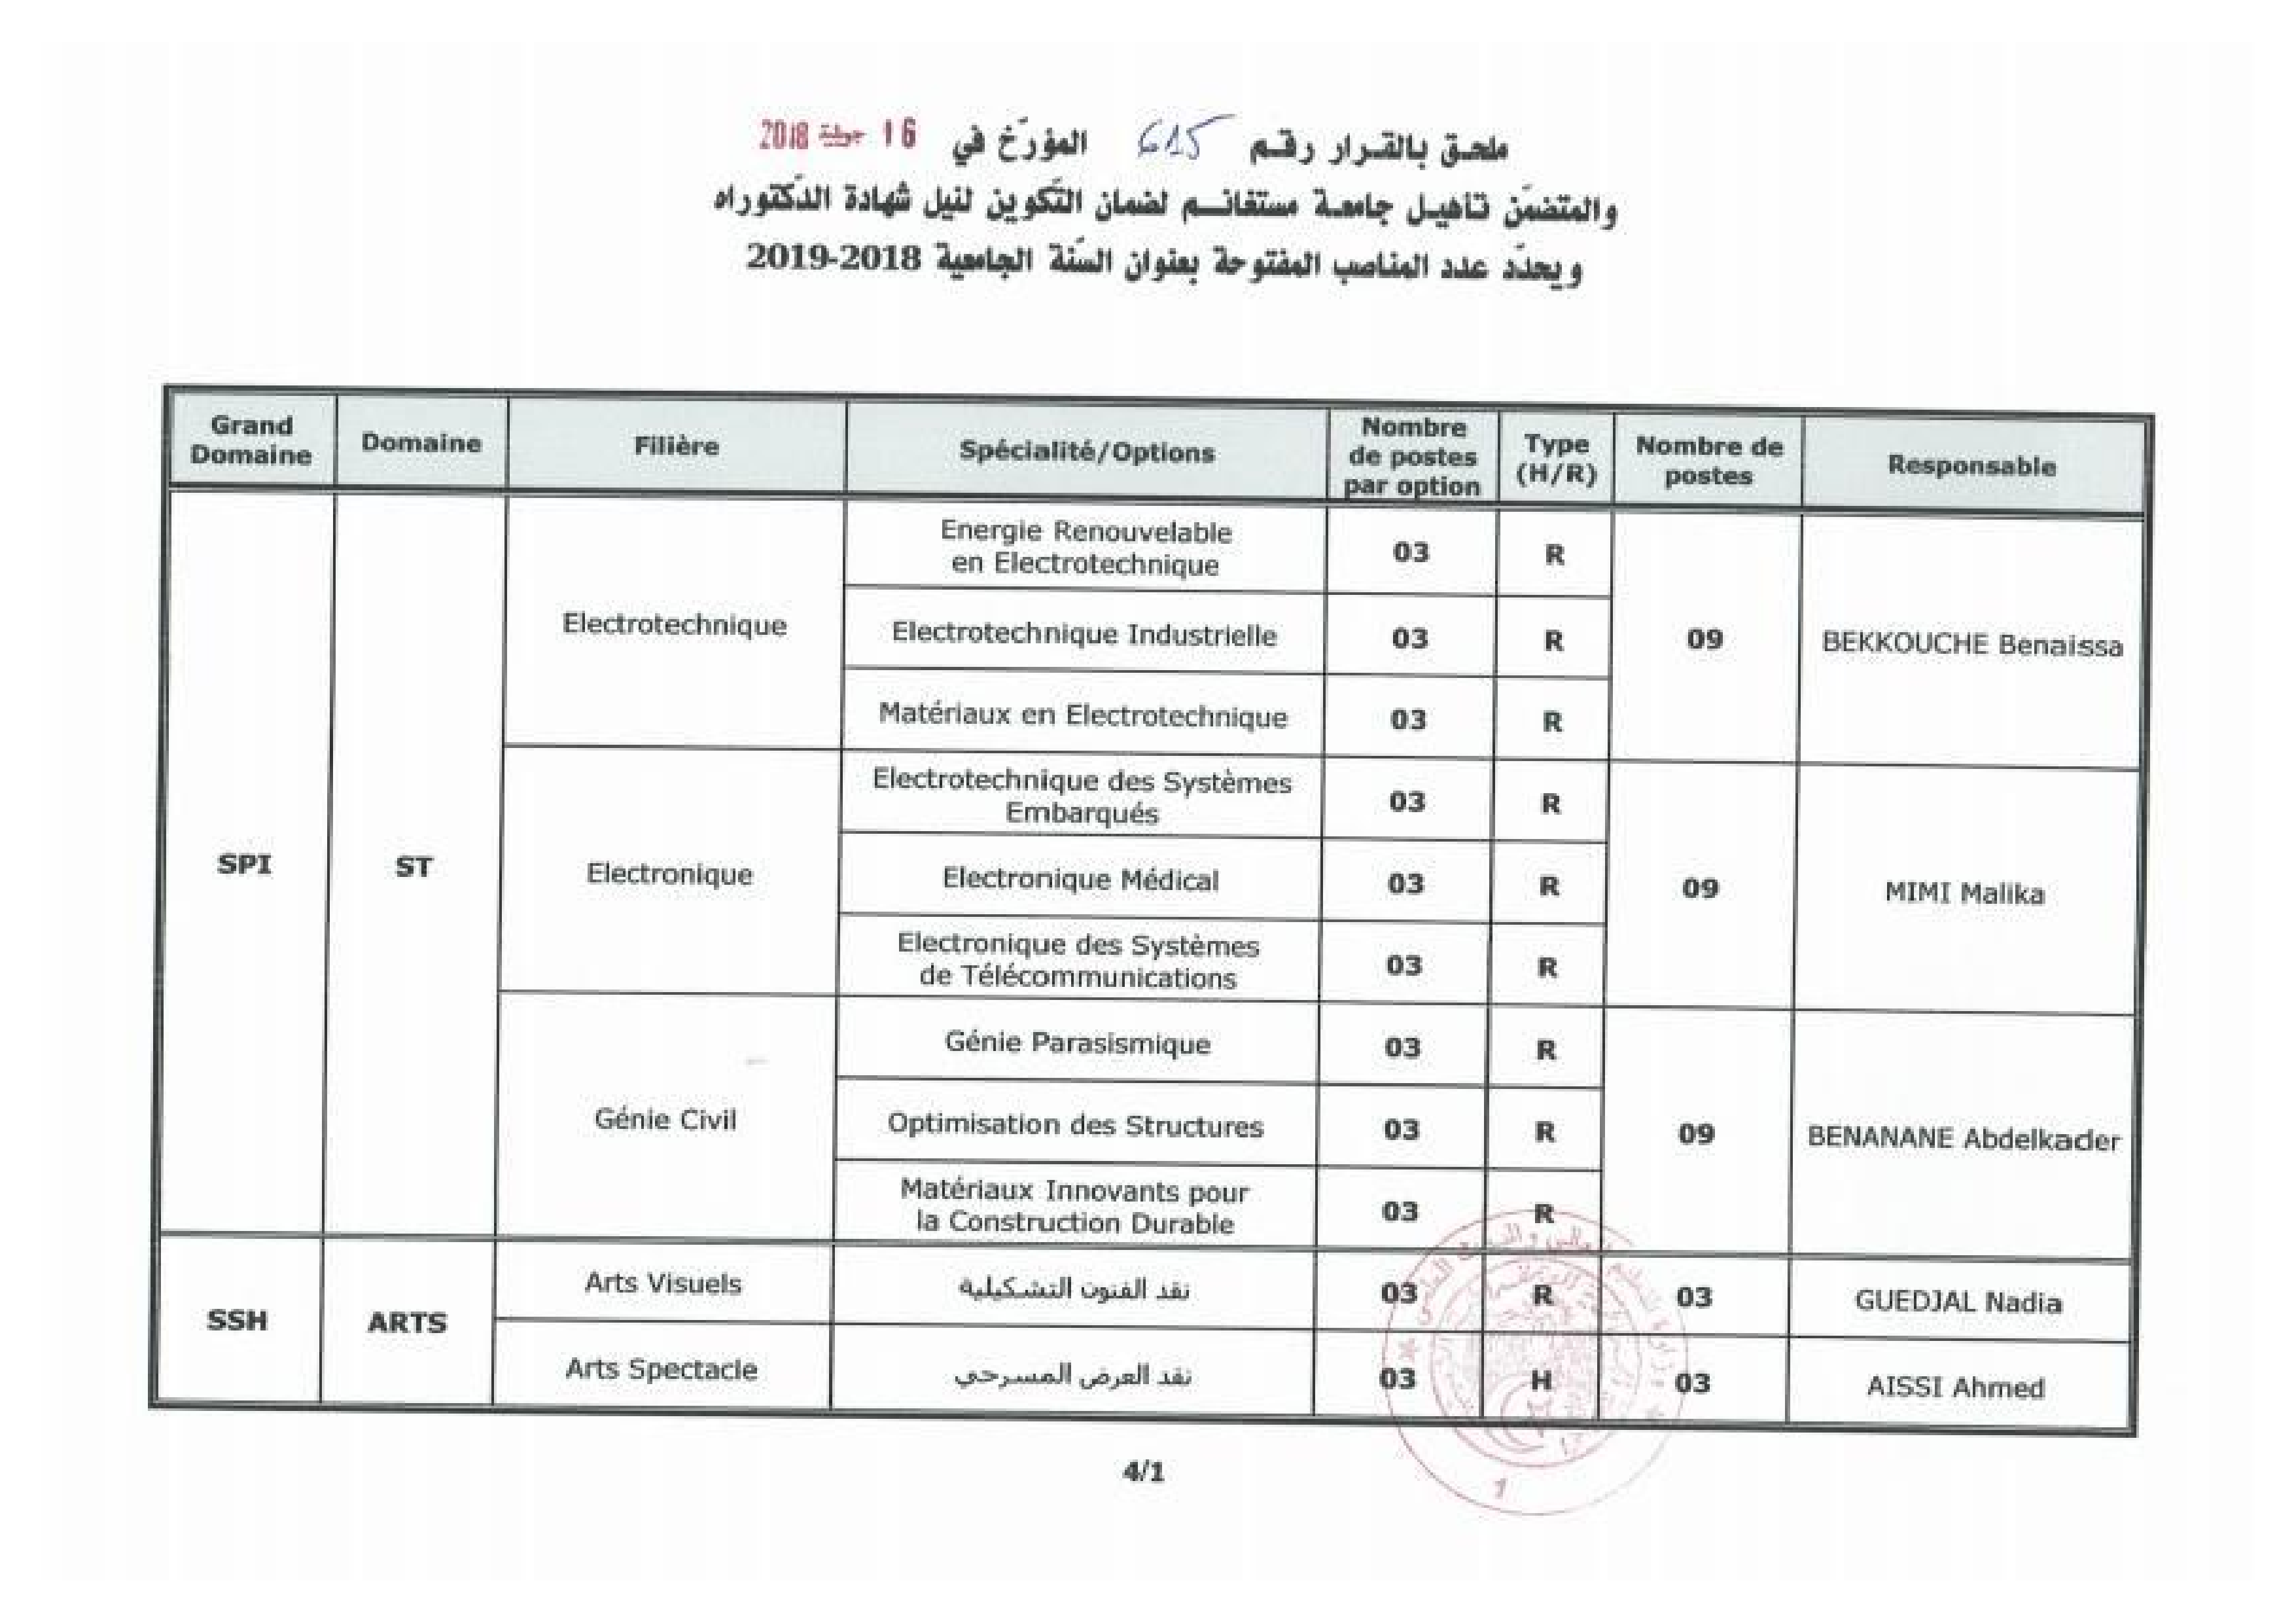 ملحق بالقرار رقم 615 المؤرّخ في 16 جويلية 2018
والمتضمّن تأهيل جامعة مستغانم لضمان التّكوين لنيل شهادة الدّكتوراه
ويحدّد عدد المناصب المفتوحة بعنوان السّنة الجامعية 2018-2019
Grand Domaine
Domaine
Filière
Spécialité/Options
Nombre de postes par option
Type (H/R)
Nombre de postes
Responsable
SPI
ST
Electrotechnique
Energie Renouvelable
en Electrotechnique
03
R
09
BEKKOUCHE Benaissa
Electrotechnique Industrielle
03
R
Matériaux en Electrotechnique
03
R
Electronique
Electrotechnique des Systèmes
Embarqués
03
R
09
MIMI Malika
Electronique Médical
03
R
Electronique des Systèmes
de Télécommunications
03
R
Génie Civil
Génie Parasismique
03
R
09
BENANANE Abdelkader
Optimisation des Structures
03
R
Matériaux Innovants pour
la Construction Durable
03
R
SSH
ARTS
Arts Visuels
نقد الفنون التشكيلية
03
R
03
GUEDJAL Nadia
Arts Spectacle
نقد العرض المسرحي
03
H
03
AISSI Ahmed
4/1
1